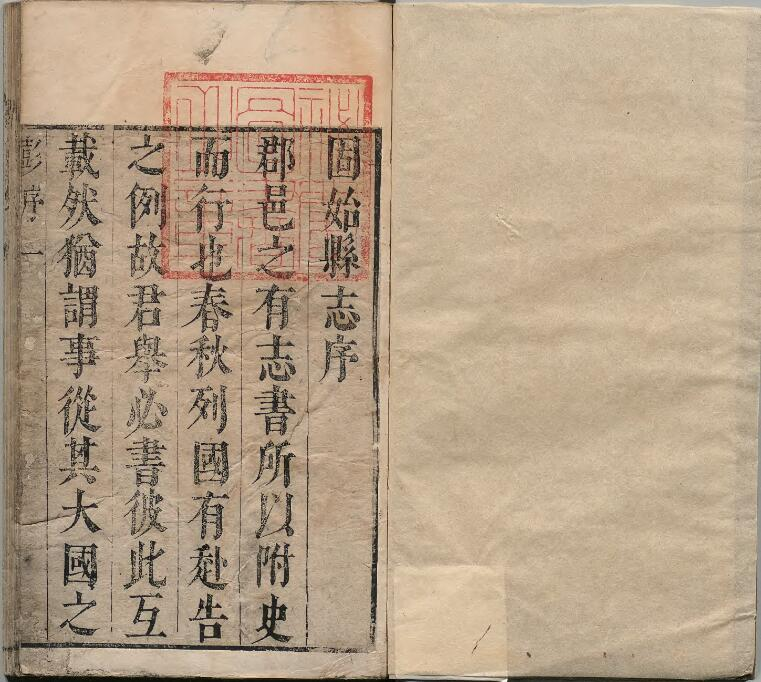 固始縣志序
郡邑之有志書所以附史
而行也春秋列國有赴告
之例故君舉必書彼此互
載然猶謂事從其大國之
彭序 一